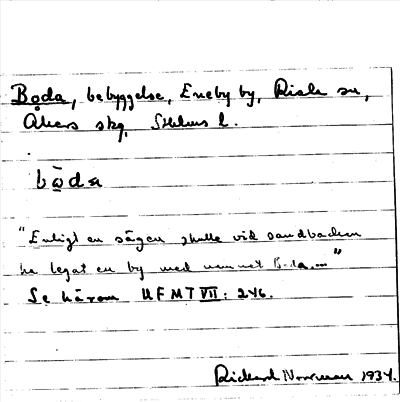 Boda, bebyggelse, Eneby by, Riala sn,
Åkers skg, Sthlms l.
bo̱da
"Enligt en sägen skulle vid sandbacken
ha legat en by med namnet Boda...."
Se härom UFMT VII: 246.
Rickard Norrman 1934.